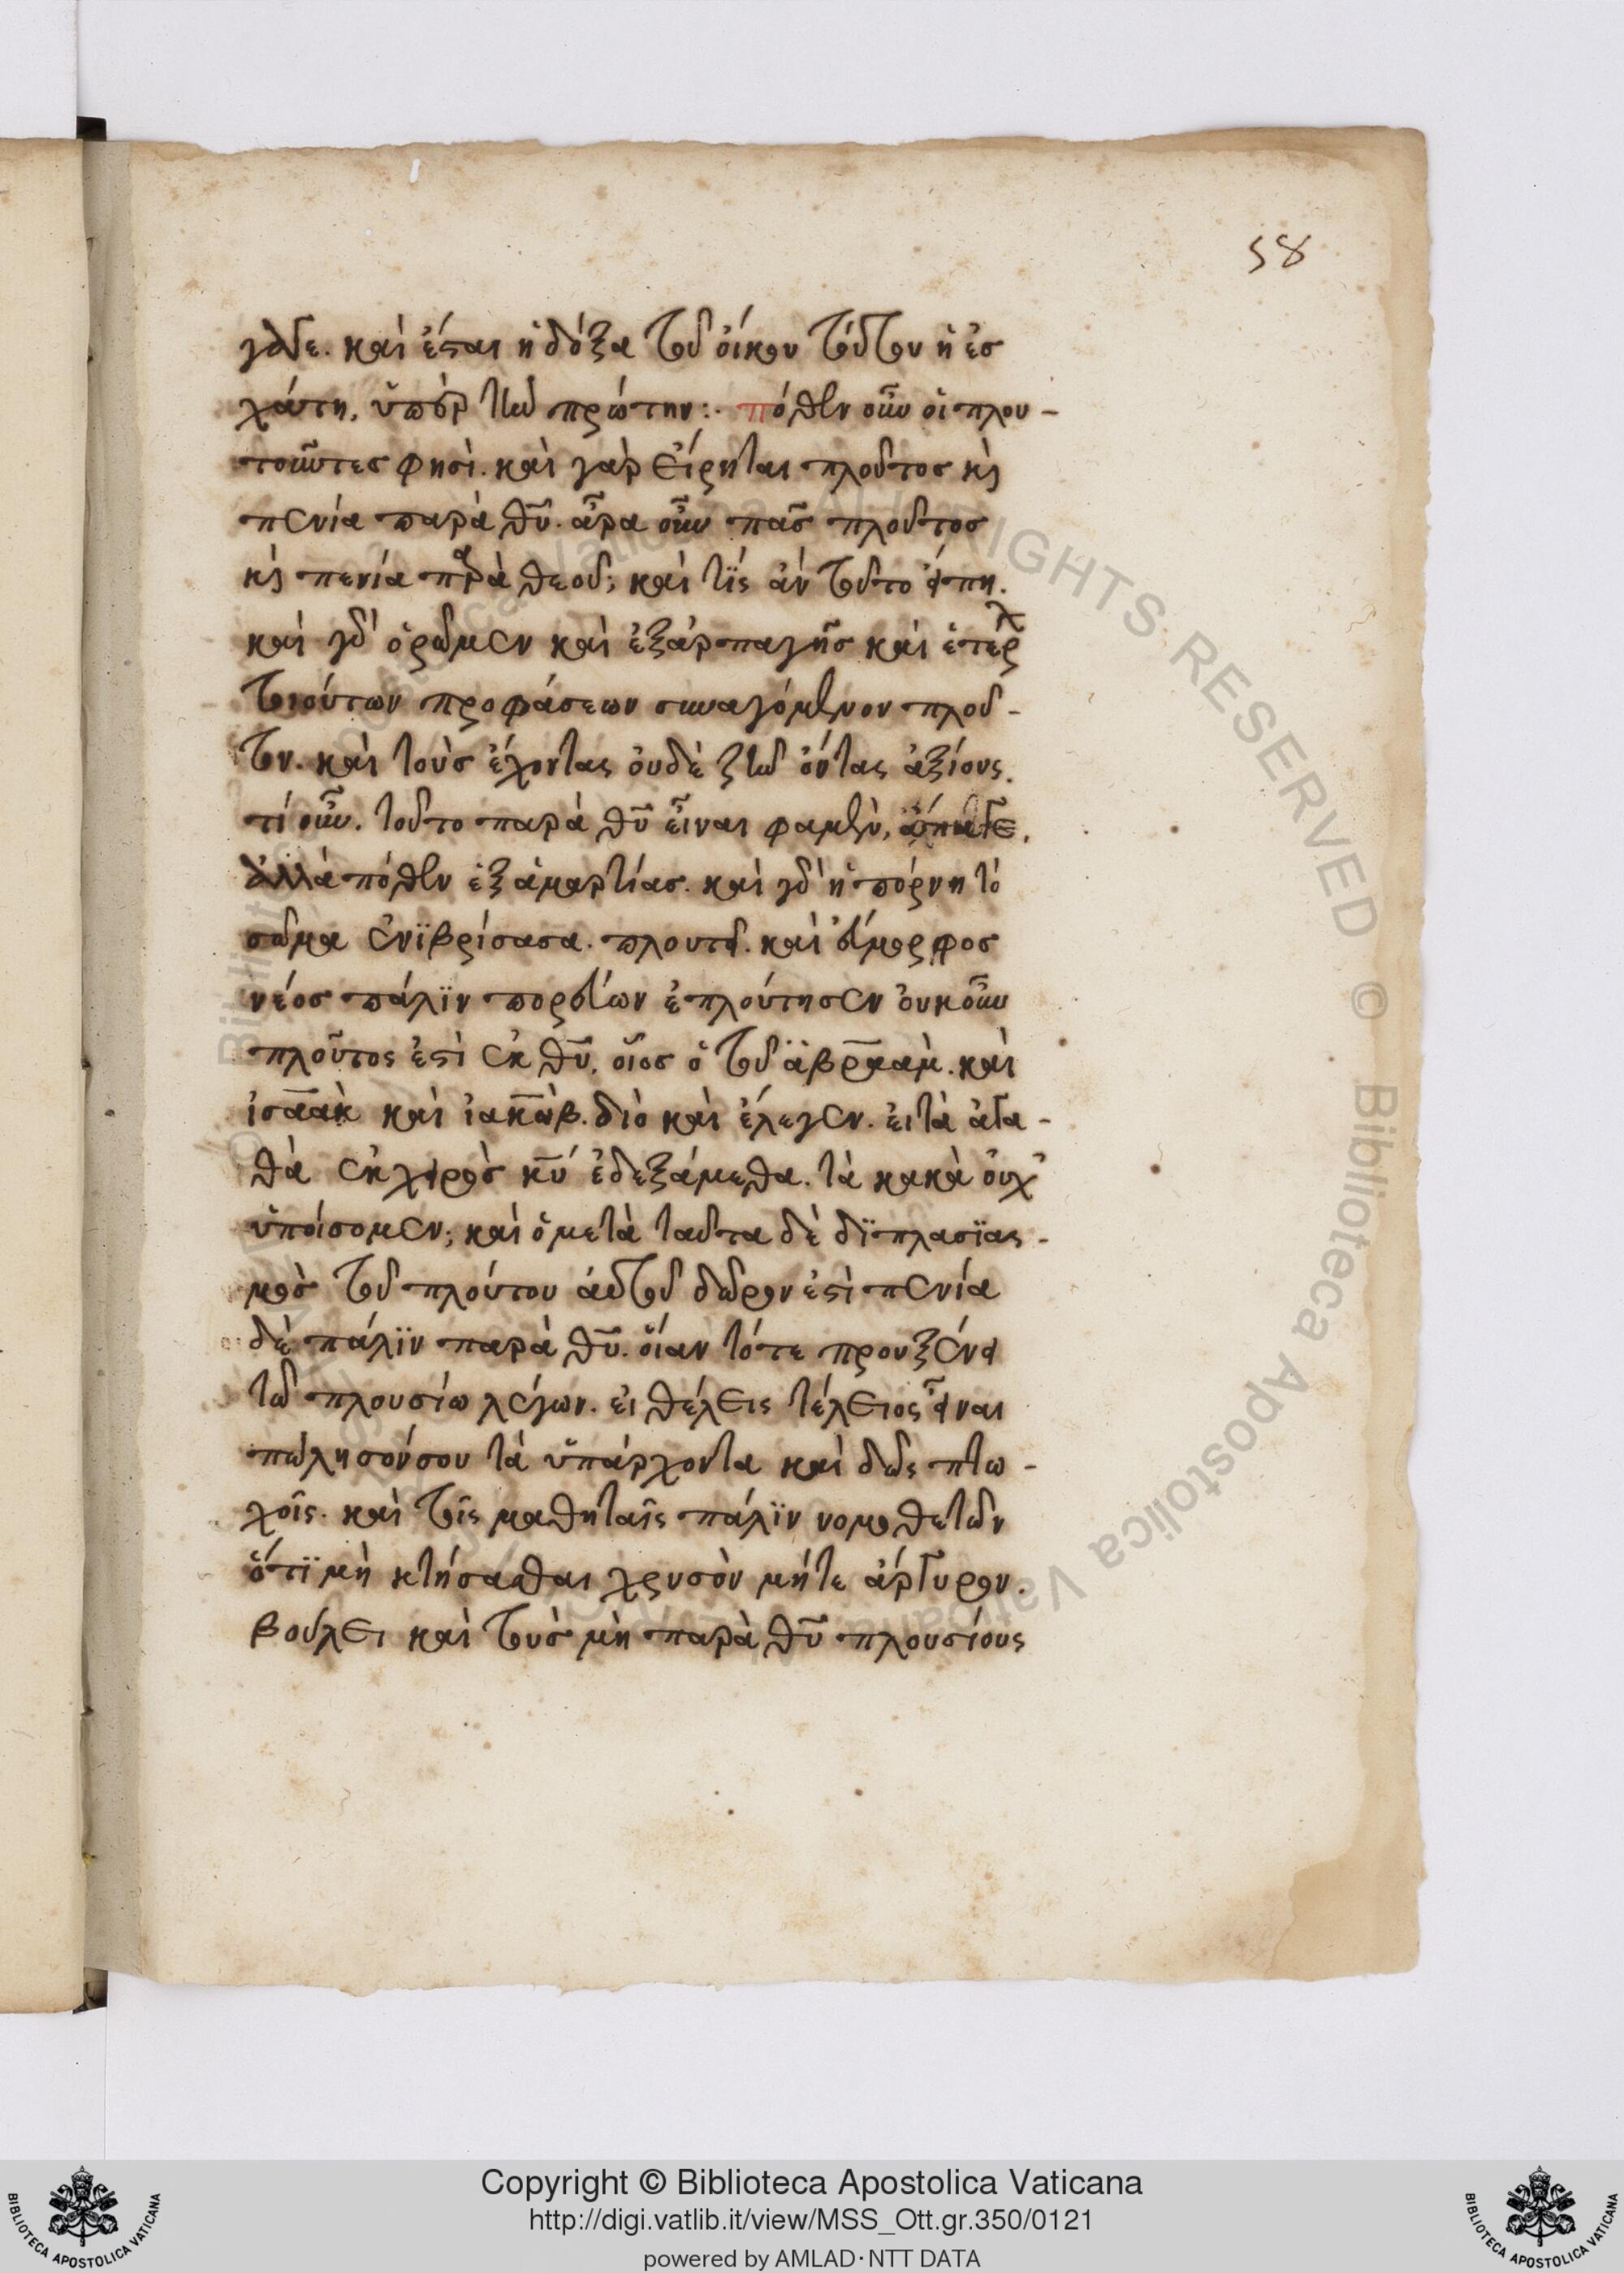 58
γάδε. καὶ ἔσται ἡ δόξα τοῦ οἴκου τούτου ἡ ἐσ
χάτη, ὑπὲρ τὴν πρώτην:. πόθεν οὖν οἱ πλου-
τοῦντες φησὶ. καὶ γὰρ εἴρηται πλοῦτος κὶ
πενία παρὰ θῦ. ἆρα οὖν πᾶς πλοῦτος
κὶ πενία παρὰ θεοῦ; καὶ τίς ἂν τοῦτο εἴπη.
καὶ γὰρ ὁρῶμεν καὶ ἐξ ἁρπαγῆς καὶ ἑτέρ
τοιούτων προφάσεων συναγόμενον πλοῦ-
τον. καὶ τοὺς ἔχοντας οὐδὲ ζῆν ὄντας ἀξίους.
τί οὖν. τοῦτο παρὰ θῦ εἶναι φαμὲν,
ἀλλὰ πόθεν ἐξ ἁμαρτίας. καὶ γὰρ ἡ πόρνη τὸ
σῶμα ἐνϊβρίσασα. πλουτεῖ. καὶ εὔμορφος
νέος πάλϊν πορεύων ἐπλούτησεν οὐκοῦν
πλοῦτος ἐστὶ ἐκ θῦ, οἷος ὁ τοῦ ἀβραὰμ. καὶ
ἰσαὰκ καὶ ἰακὼβ. διὸ καὶ ἔλεγεν. εἰ τὰ ἀγα-
θὰ ἐκ χειρὸς κῦ ἐδεξάμεθα. τὰ κακὰ οὐχ
ὑποίσομεν; καὶ ὁ μετὰ ταῦτα δὲ δϊπλασϊας-
μὸς τοῦ πλούτου αὐτοῦ δῶρον ἐστὶ πενία
δὲ πάλϊν παρὰ θῦ. οἵαν τότε προυξένει
τῶ πλουσίω λέγων. εἰ θέλεις τέλειος εἶναι
πώλησόν σου τὰ ὑπάρχοντα καὶ δὸς πτω-
χοῖς. καὶ τοῖς μαθηταῖς πάλϊν νομοθετῶν
ὅτϊ μὴ κτήσασθαι χρυσὸν μήτε ἄργυρον.
βούλει καὶ τοὺς μὴ παρὰ θῦ πλουσίους
Copyright © Biblioteca Apostolica Vaticana
http://digi.vatlib.it/view/MSS_Ott.gr.350/0121
powered by AMLAD·NTT DATA